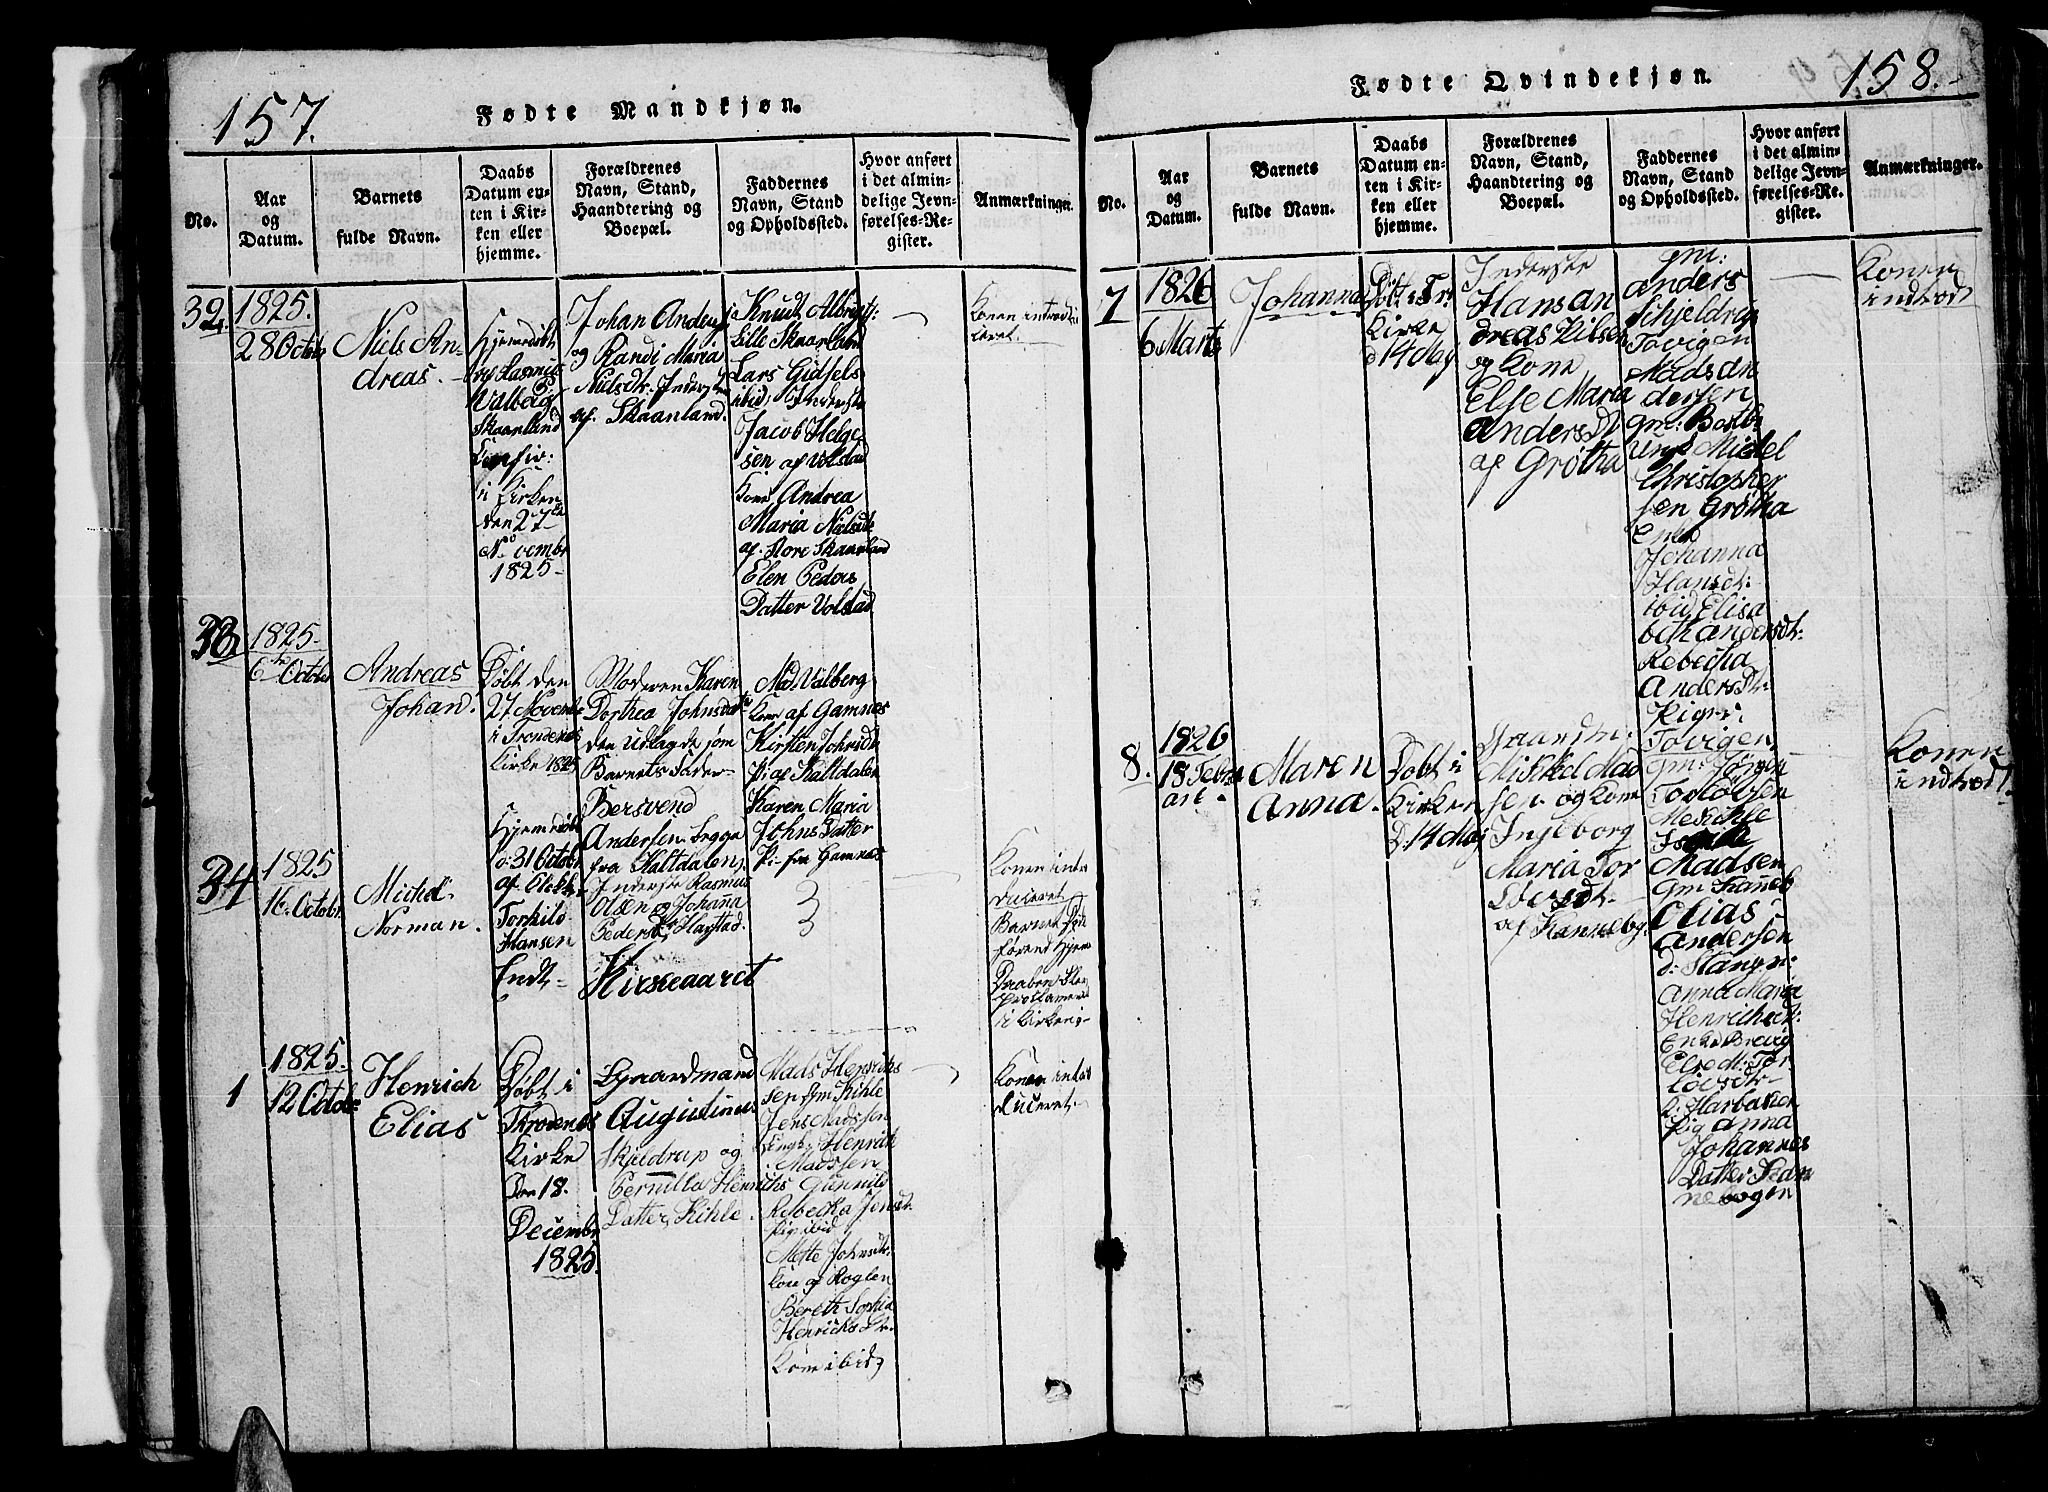 157.
Fødte Mandkjøn.
No.
Aar
og
Datum.
Barnets
fulde Navn.
Daabs
Datum en-
ten i Kir-
ken eller
hjemme.
Forældrenes
Navn, Stand,
Haandtering og
Boepæl.
Faddernes
Navn, Stand
og Opholdssted.
Hvor anført
i det almin-
delige Jevn-
førelses-Re-
gister.
Anmærkninger.
32.
1825.
28 Octobr
Niels An-
dreas.
Hjemedøbt
af Rasmus
Valberg
Skaanland
i Kirken
den 27de
Novembr
1825-
Johan Anders
og Randi Maria
Nielsdtr. Inderster
af. Skaanland.
Knudt Albrigts:
Lille Skaanland
Lars Gidsels
ibid, Inderste
Jacob Helge
sen af Volstad
Kone Andrea
Maria Nielsdtr
af. Store Skaanland
Elen Peders
Datter Volstad
Konen introdu-
ceret.
33
1825-
6te Octobr
Andreas
Johan.
Døbt den
27 Novembr
i Trondenæs
Kirke 1825
Moderen Karen
Dorthea Johnsdatter
den Udlagde som
Barnets Fader-
Bersvend
Andersen Legge
fra Kaltdalen
Md. Valberg
Kone af Gamnes
Kirsten Johnsdtr
Pi. af Kaltdalen
Karen Maria
Johns Datter
Pi- fra Gamnes
34
1825
16. Octobr
Michel
Norman.
Hjemedøbt
d. 31 Octobr
af. Klokker
Torkild
Hansen
Endt-
Inderste Rasmus
Olsen og Johanna
Pedersdtr, Hagstad.
Kirkegaaret
Konen intro
duceret
Barnet
i Kirken
1
1825.
12 Octobr
Henrich
Elias
Døbt i
Trodenæs
Kirke
Den 18.
Decembr
1825.
Gaardmand
Augustinus
Skjeldrup og
Pernilla Henrichs
Datter, Kihle.
Mads Henrichs
sen Gm Kihle
Jens Madssen
Ungk, Henrik
Madssen
Gunnild
Rebecka Jensdt.
Pig ibid
Mette Johnsdtr.
Kone af Roglen
Bereth Sophia
Henrichs Dr.
Kone ibid,
Konen intro
duceret
158.
Fødte Qvindekjøn.
No.
Aar
og
Datum.
Barnets
fulde Navn.
Daabs
Datum en-
ten i Kir-
ken eller
hjemme.
Forældrenes
Navn, Stand,
Haandtering og
Boepæl.
Faddernes
Navn, Stand
og Opholdssted.
Hvor anført
i det almin-
delige Jevn-
førelses-Re-
gister.
Anmærkninger.
7
1826
6 Marts
Johanna
Døbt i Tr:
Kirke
d 14 Maj
Inderste
Hans An
dreas Nilsen
og Kone
Else Maria
Anders Dt
af Grøtha
gm:
Anders
Schjeldrup
Tovigen
Mads An
dersen
Ungk Michel
Christopher
sen Grøtha
Enke
Johanna
Hansdt:
ibid, Elisa
beth Andersdt:
Rebecha
Anders Dt:
Piger:
Tovigen
Konen
indledt
8.
1826
18 Febru
ari-
Maren
Anna.
Døbt i
Kirken
D. 14 Maj
Gaardm:
Mickel Mad
sen og Kone
Ingeborg
Maria Tor
af Kannebg.
Gm: Jørgen
Madsen
Gm Kanneb
Elias
Andersen
d: Stangn:
Anna Maria
Henrichsdt:
Pig Anna
Johannes
Datter Kan
nebogen
Konen
indledt.